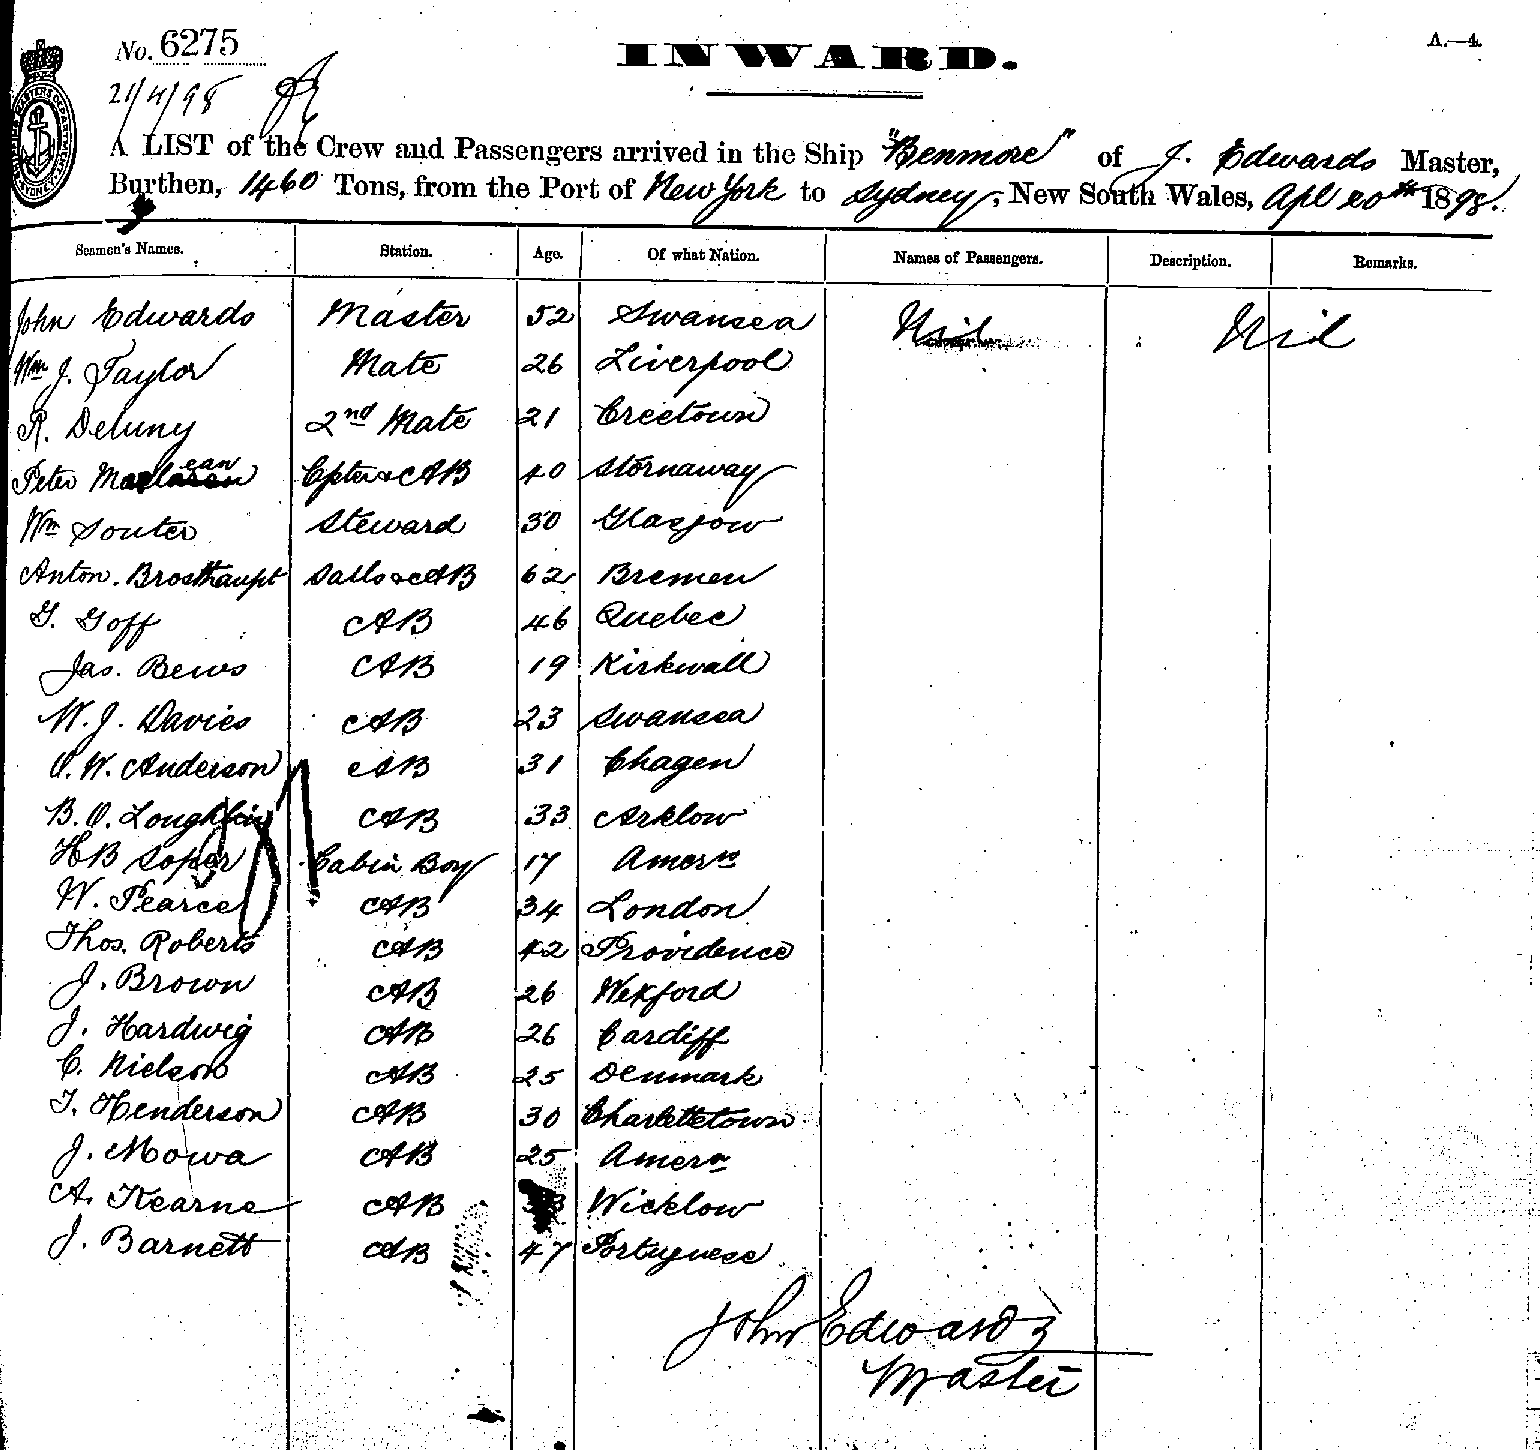 No. 6275
A.—4.
INWARD.
21/4/98
A LIST of the Crew and Passengers arrived in the Ship "Benmore" of J. Edwards Master,
Burthen, 1460 Tons, from the Port of New York to Sydney, New South Wales, Apl 20th 1898.
Seamen's Names. Station. Age. Of what Nation. Names of Passengers. Description. Remarks.
John Edwards Master 52 Swansea Nil Nil
Wm J. Taylor Mate 26 Liverpool
R. Deluny 2nd Mate 21 Creetown
Peter Maclean Cpter & AB 40 Stornaway
Wm Souter Steward 30 Glasgow
Anton. Brosthaupt Sails & AB 62 Bremen
G. Goff AB 46 Quebec
Jas. Bews AB 19 Kirkwall
W. J. Davies AB 23 Swansea
O. W. Anderson AB 31 Chagen
B. O. Loughlin AB 33 Arklow
HB Soper Cabin Boy 17 Amern
W. Pearce AB 34 London
Thos. Roberts AB 42 Providence
J. Brown AB 26 Wexford
J. Hardwig AB 26 Cardiff
C. Nielson AB 25 Denmark
T. Henderson AB 30 Charlettetown
J. Mowa AB 25 Amern
A. Kearne AB Wicklow
J. Barnett AB 47 Portuguese
John Edwards
Master